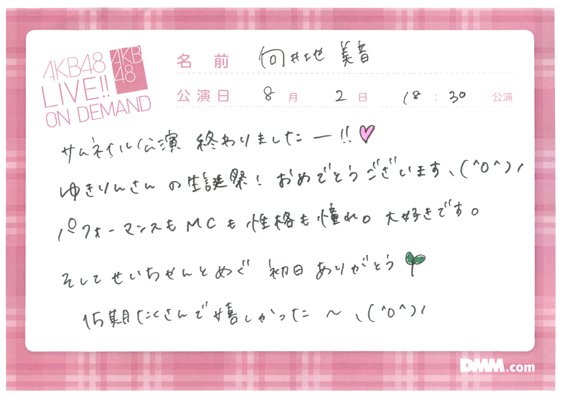 AKB48
LIVE!!
ON DEMAND
AKB
48
名前 向井地 美音
公演日 8月 2日 18:30 公演
サムネイル公演 終わりましたー!!
ゆきりんさんの生誕祭! おめでとうございます、(^0^)ノ
パフォーマンスもMCも性格も憧れ。大好きです。
そしてせいちゃんとめぐ 初日 ありがとう
15期たくさんで嬉しかった 〜 、(^0^)ノ
DMM.com